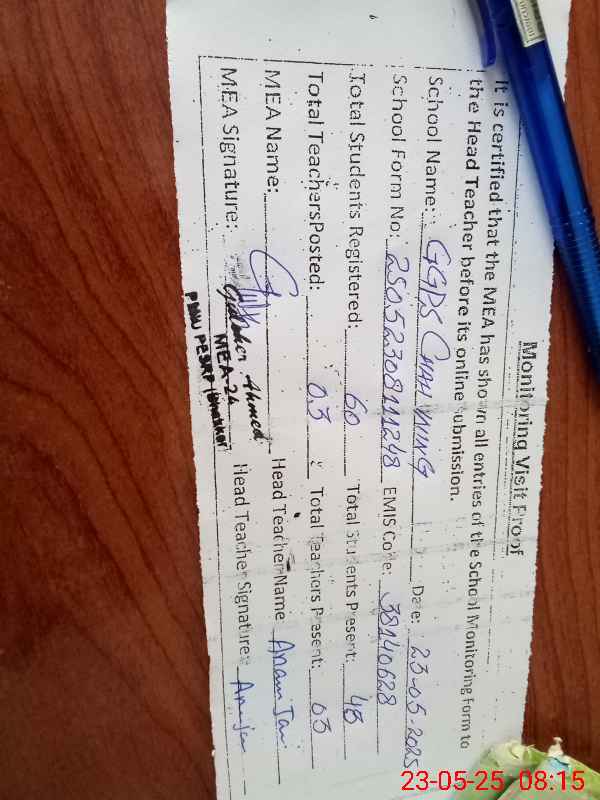 Monitoring Visit Proof
It is certified that the MEA has shown all entries of the School Monitoring Form to
the Head Teacher before its online submission.
School Name: GGPS CHAH WING Date: 23-05-2025
School Form No: 280523081111248 EMIS Code: 38140628
Total Students Registered: 60 Total Students Present: 48
Total TeachersPosted: 03 Total Teachers Present: 03
MEA Name: Head Teacher Name Anam Jan
MEA Signature: Head Teacher Signature:
Ahmed
MEA-24
23-05-25 08:15